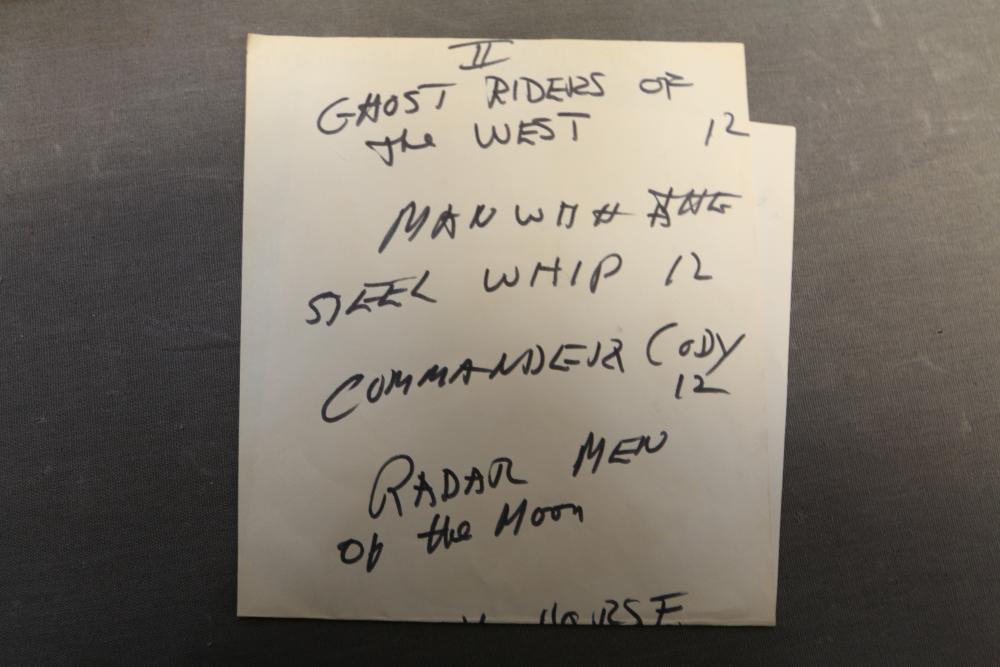 II
GHOST RIDERS OF
the WEST 12
MAN WITH THE
STEEL WHIP 12
COMMANDER CODY
12
RADAR MEN
of the Moon
HORSE